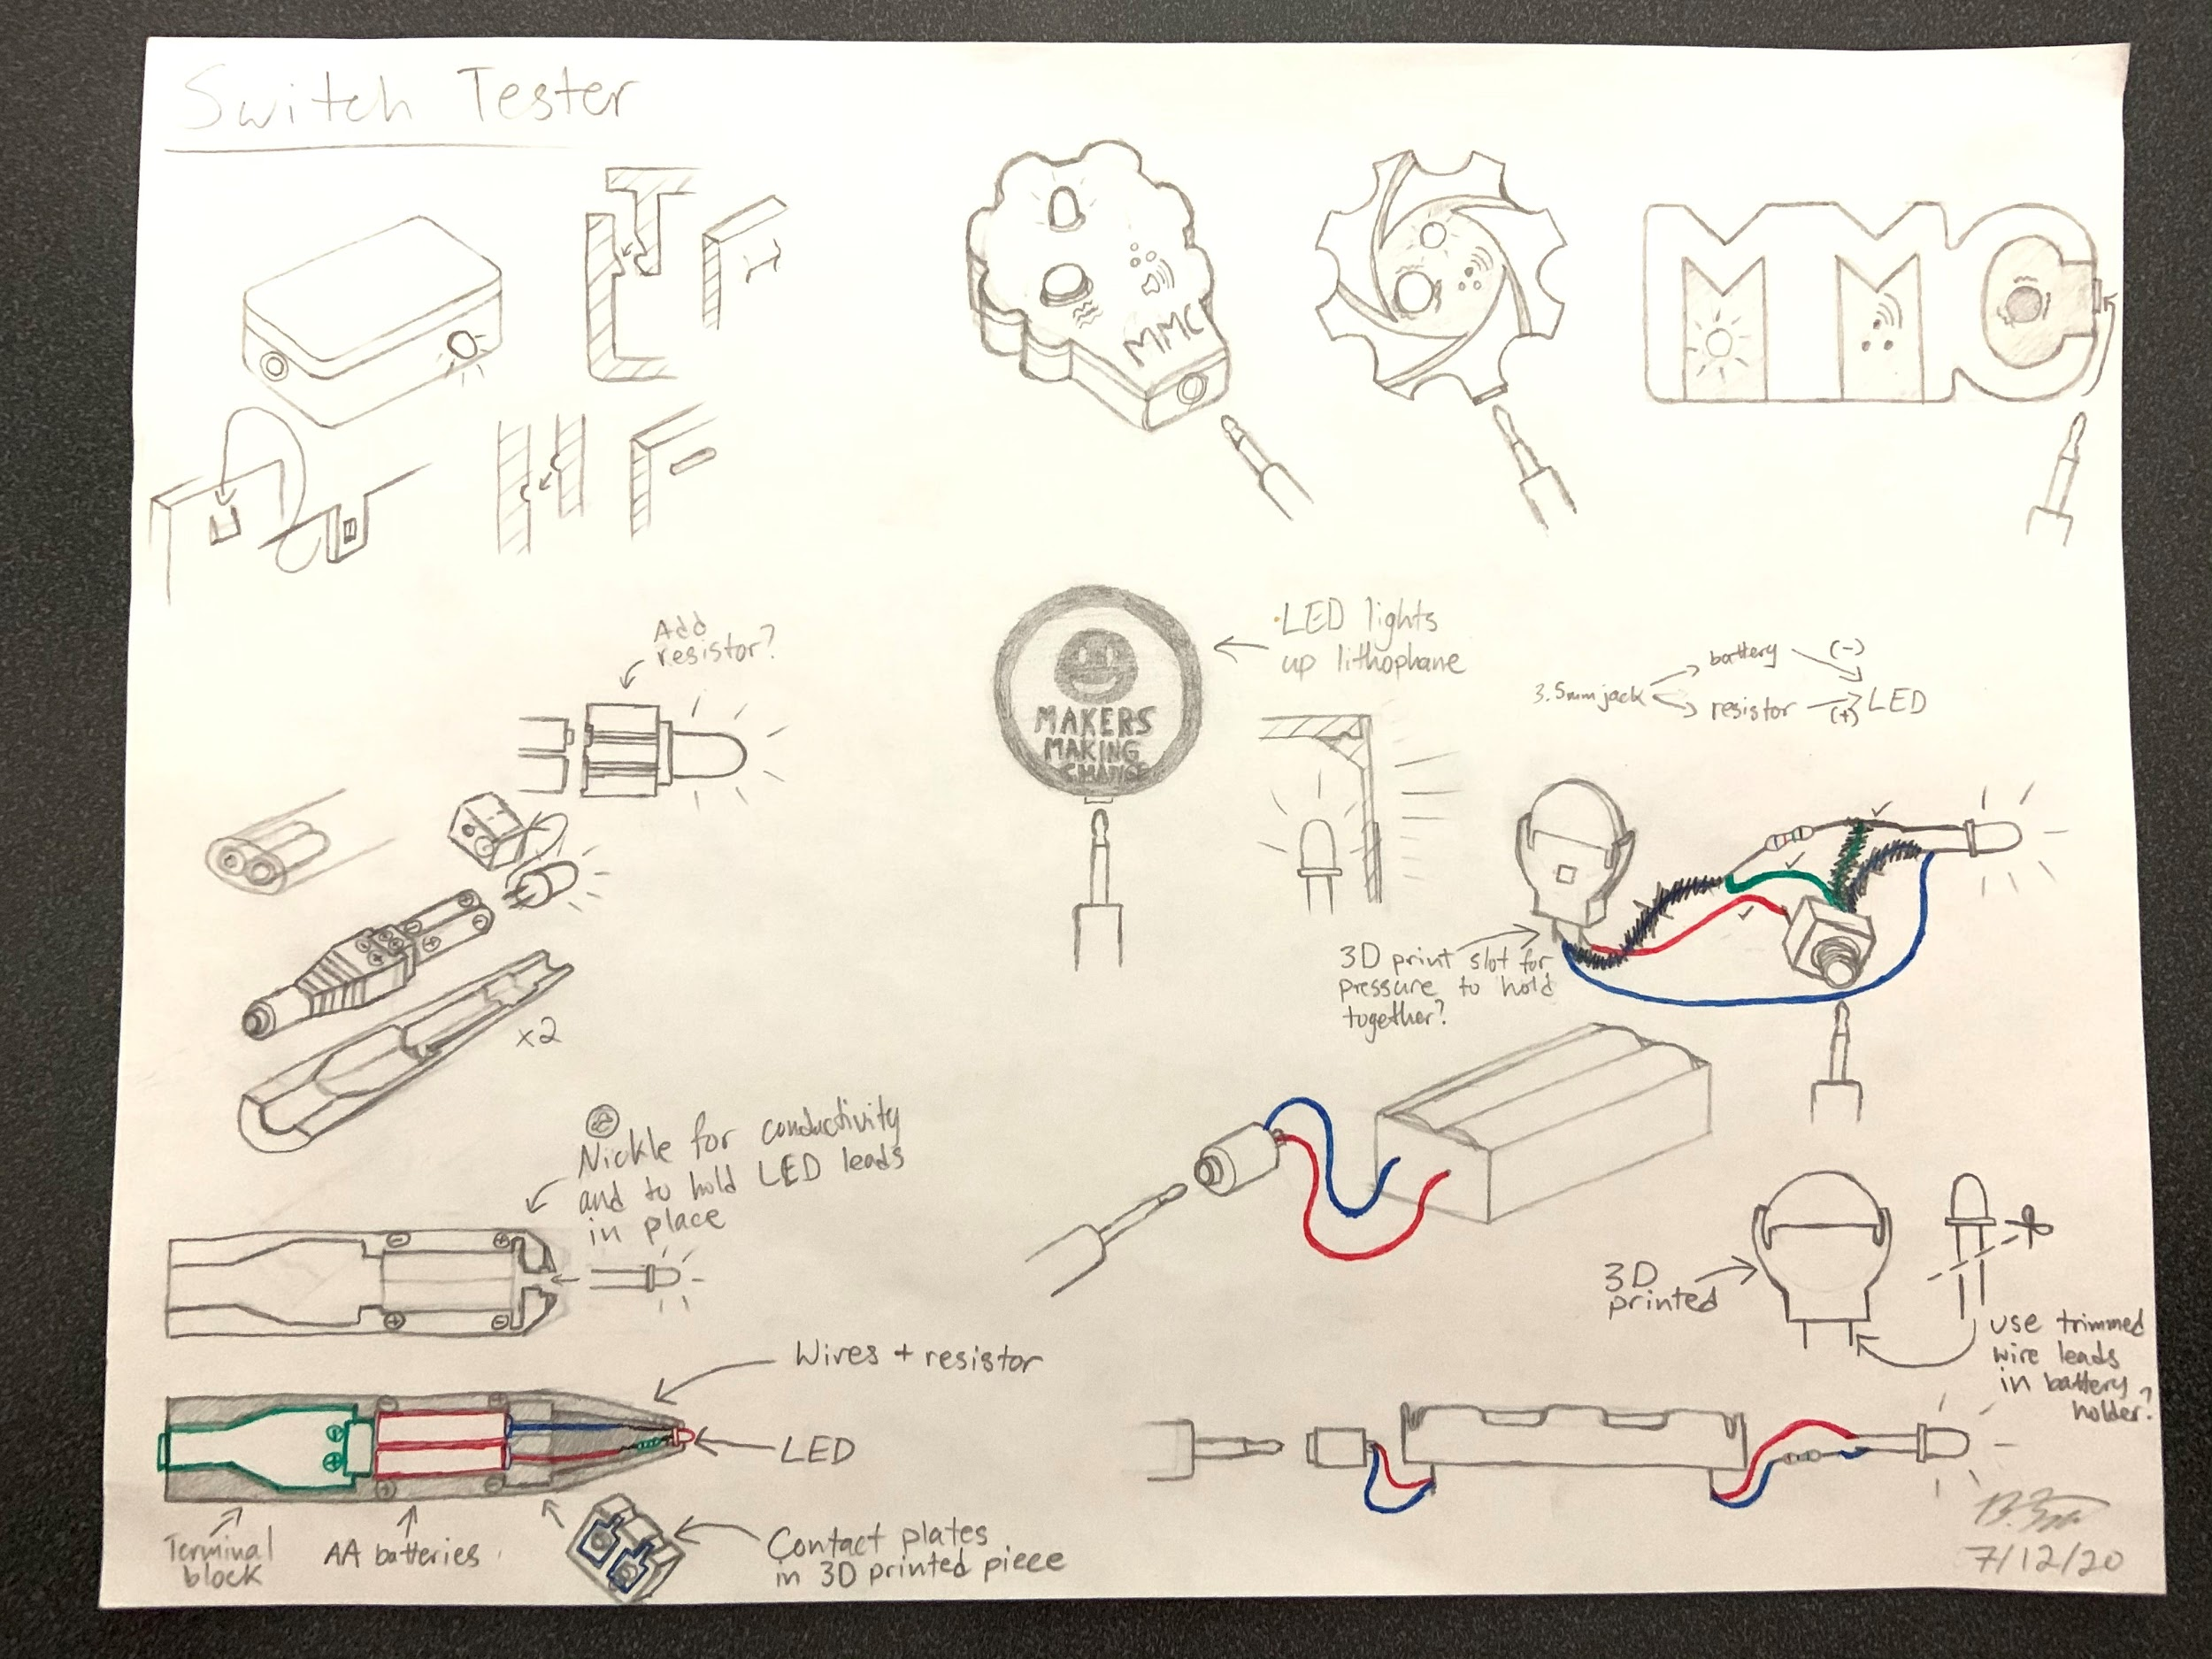 Switch Tester
MMC
MMC
Add
resistor?
MAKERS
MAKING
CHANGE
LED lights
up lithophane
3.5mm jack
battery
(-)
resistor
(+)
LED
3D print slot for
pressure to hold
together?
x2
Nickle for conductivity
and to hold LED leads
in place
3D
printed
use trimmed
wire leads
in battery
holder?
Wires + resistor
LED
Terminal
block
AA batteries
Contact plates
in 3D printed piece
7/12/20